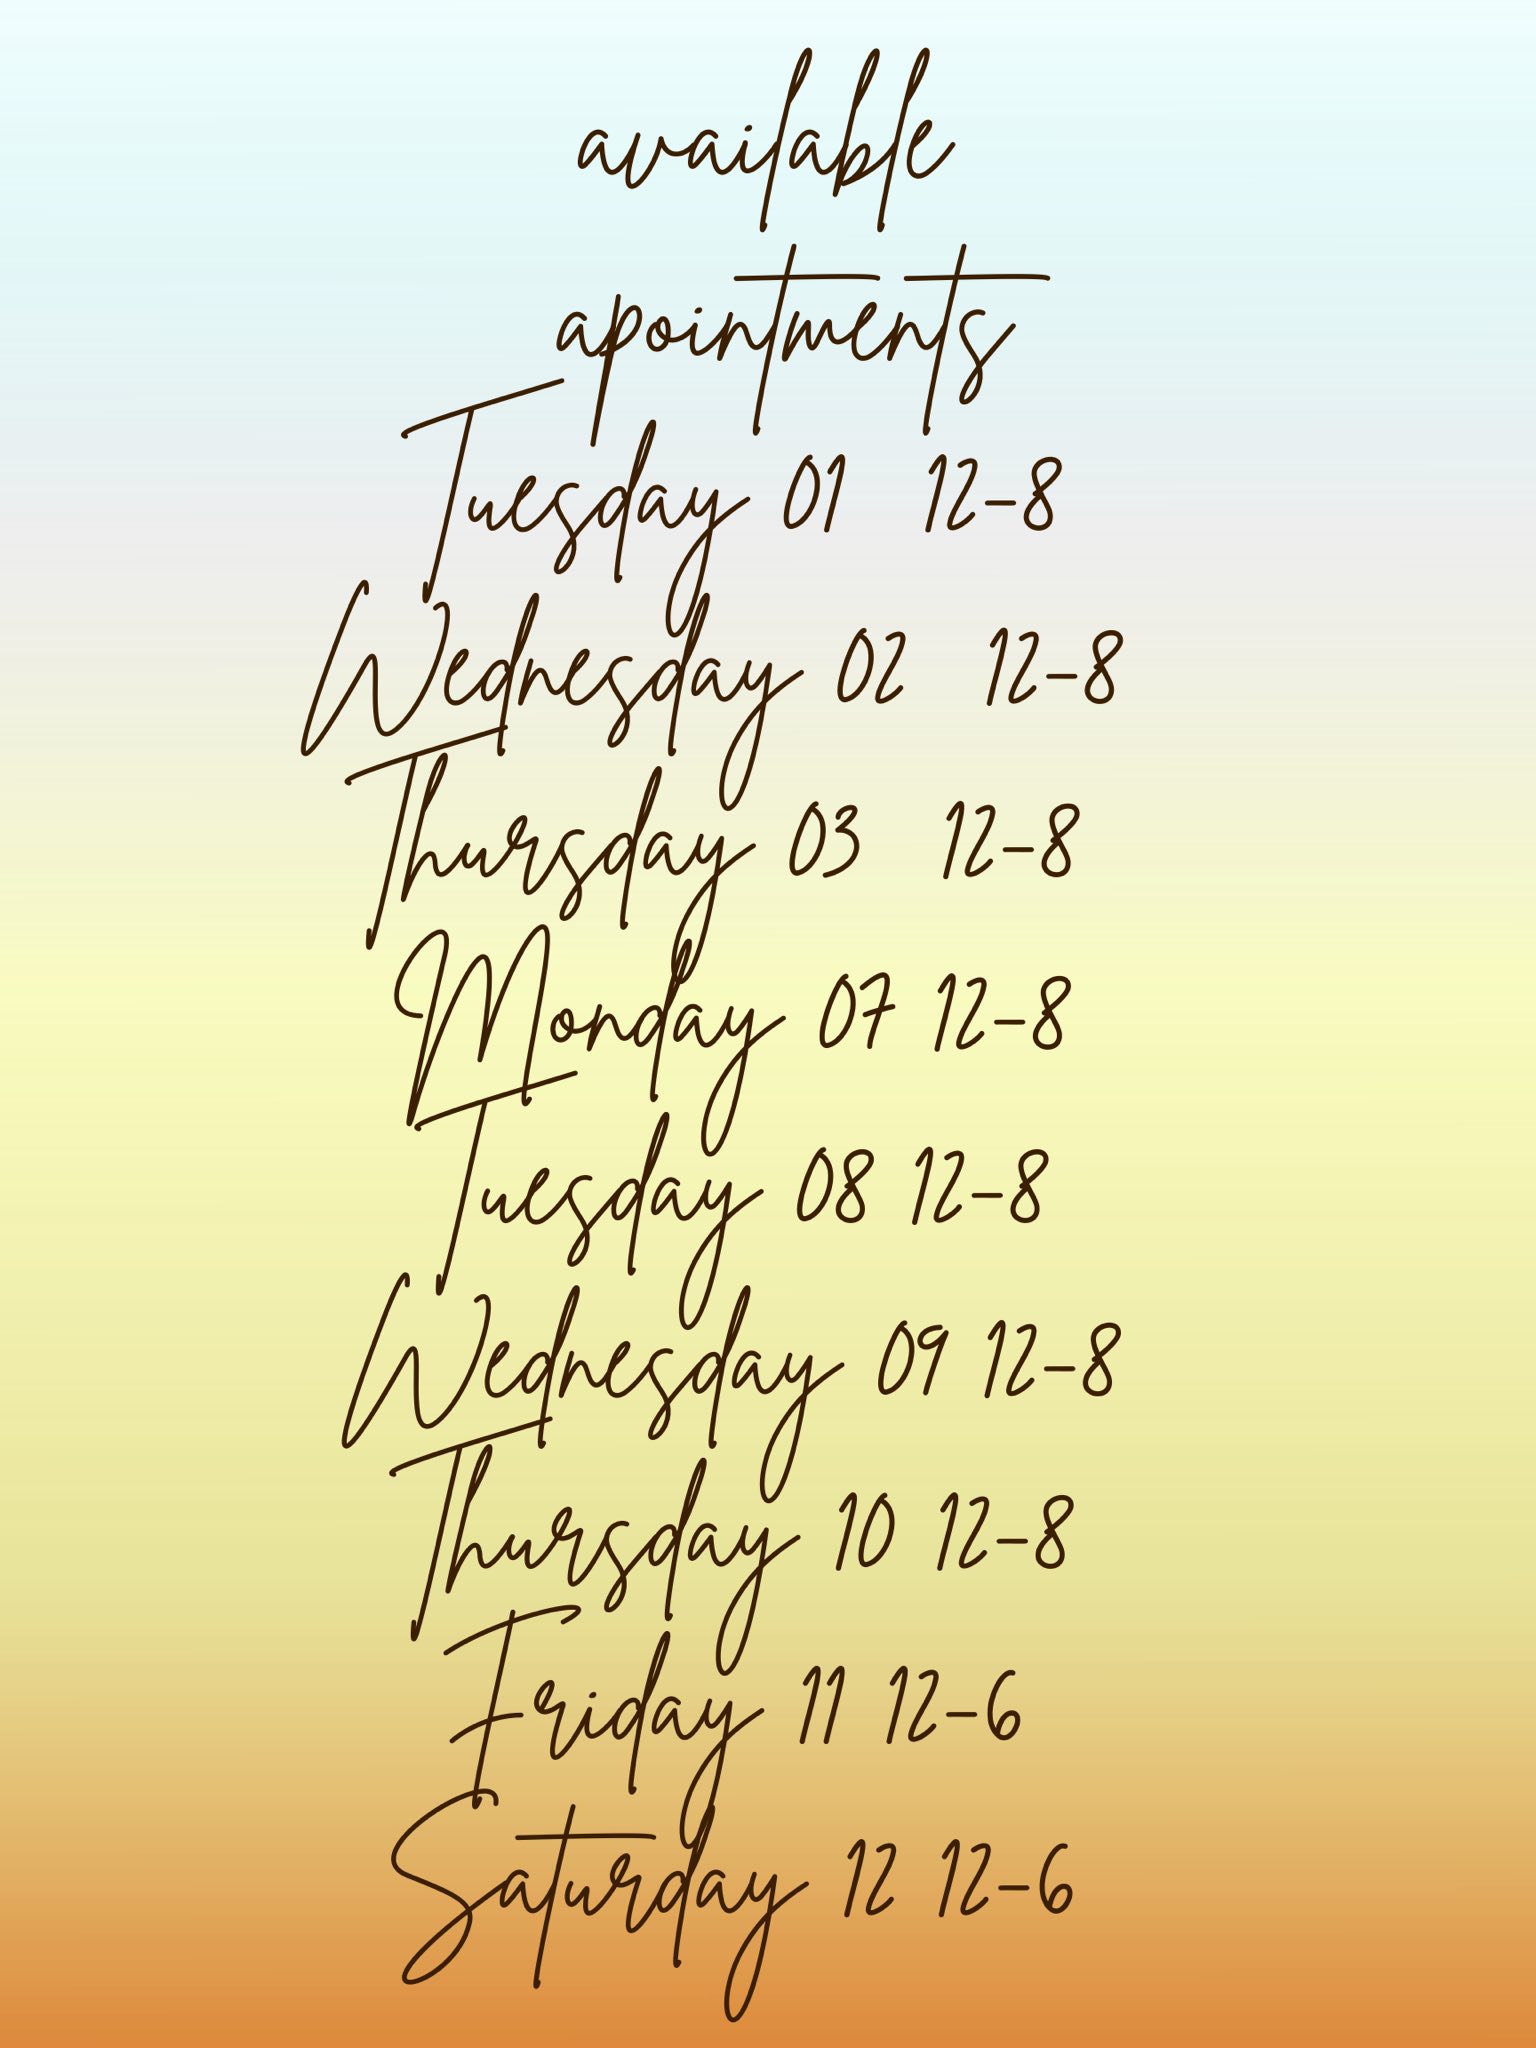 available
apointments
Tuesday 01 12-8
Wednesday 02 12-8
Thursday 03 12-8
Monday 07 12-8
Tuesday 08 12-8
Wednesday 09 12-8
Thursday 10 12-8
Friday 11 12-6
Saturday 12 12-6